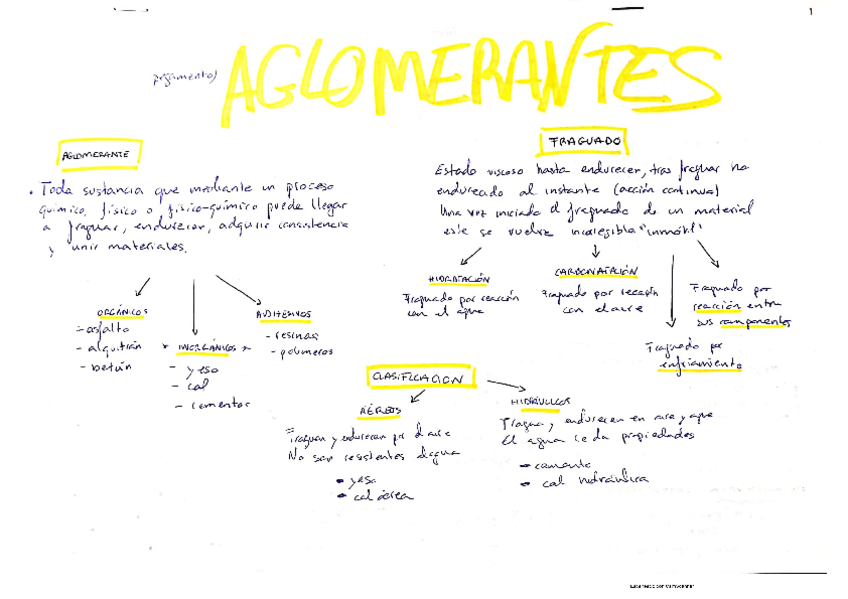 1
pegamentos
AGLOMERANTES
AGLOMERANTE
• Toda sustancia que mediante un proceso
químico, físico o físico-químico puede llegar
a fraguar, endurecer, adquirir consistencia
y unir materiales.
ORGÁNICOS
- asfalto
- alquitrán
- betún
* INORGÁNICOS *
- yeso
- cal
- cementos
ADHESIVOS
- resinas
- polímeros
FRAGUADO
Estado viscoso hasta endurecer, tras fraguar no
endurecido al instante (acción continua)
Una vez iniciado el fraguado de un material
este se vuelve "inmóvil"
HIDRATACIÓN
Fraguado por reacción
con el agua
CARBONATACIÓN
Fraguado por reacción
con el aire
Fraguado por
enfriamiento
Fraguado por
reacción entre
sus componentes
CLASIFICACION
AÉREOS
Fraguan y endurecen por el aire
No son resistentes al agua
- yeso
- cal aérea
HIDRÁULICOS
Fragua y endurecen en aire y agua
El agua le da propiedades
- cemento
- cal hidráulica
Escaneado con CamScanner